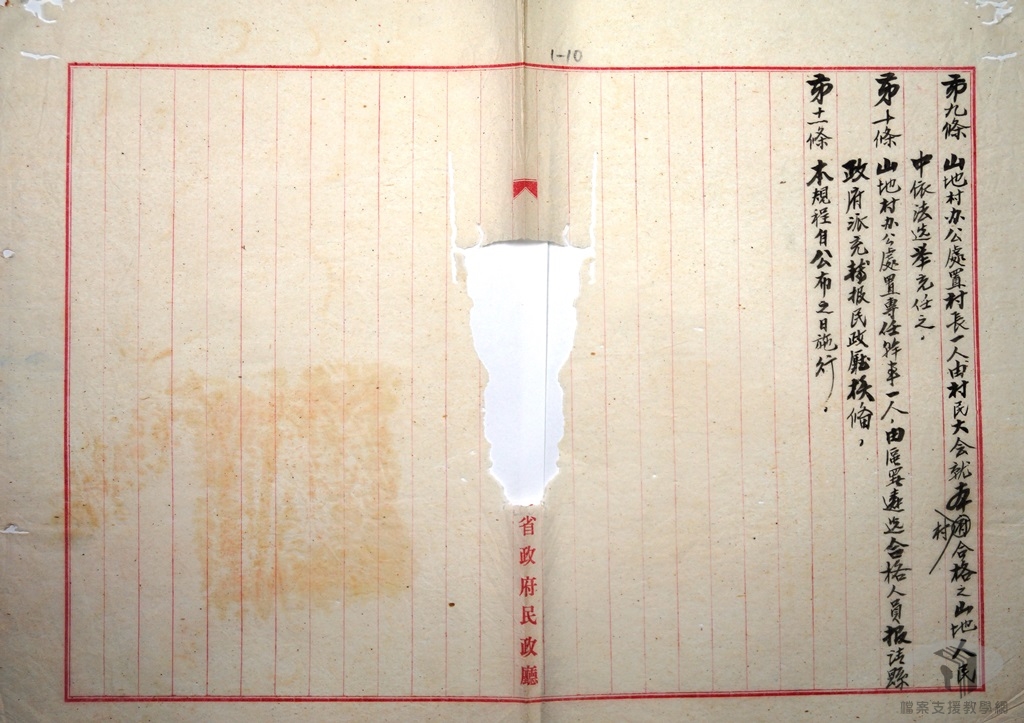 1-10
第九條 山地村办公處置村長一人由村民大会就本村合格之山地人民
中依法选举充任之．
第十條 山地村办公處置專任幹事一人，由區署遴选合格人員报請縣
政府派充轉报民政廳核俻，
第十一條 本規程自公布之日施行．
省政府民政廳
檔案支援教學網